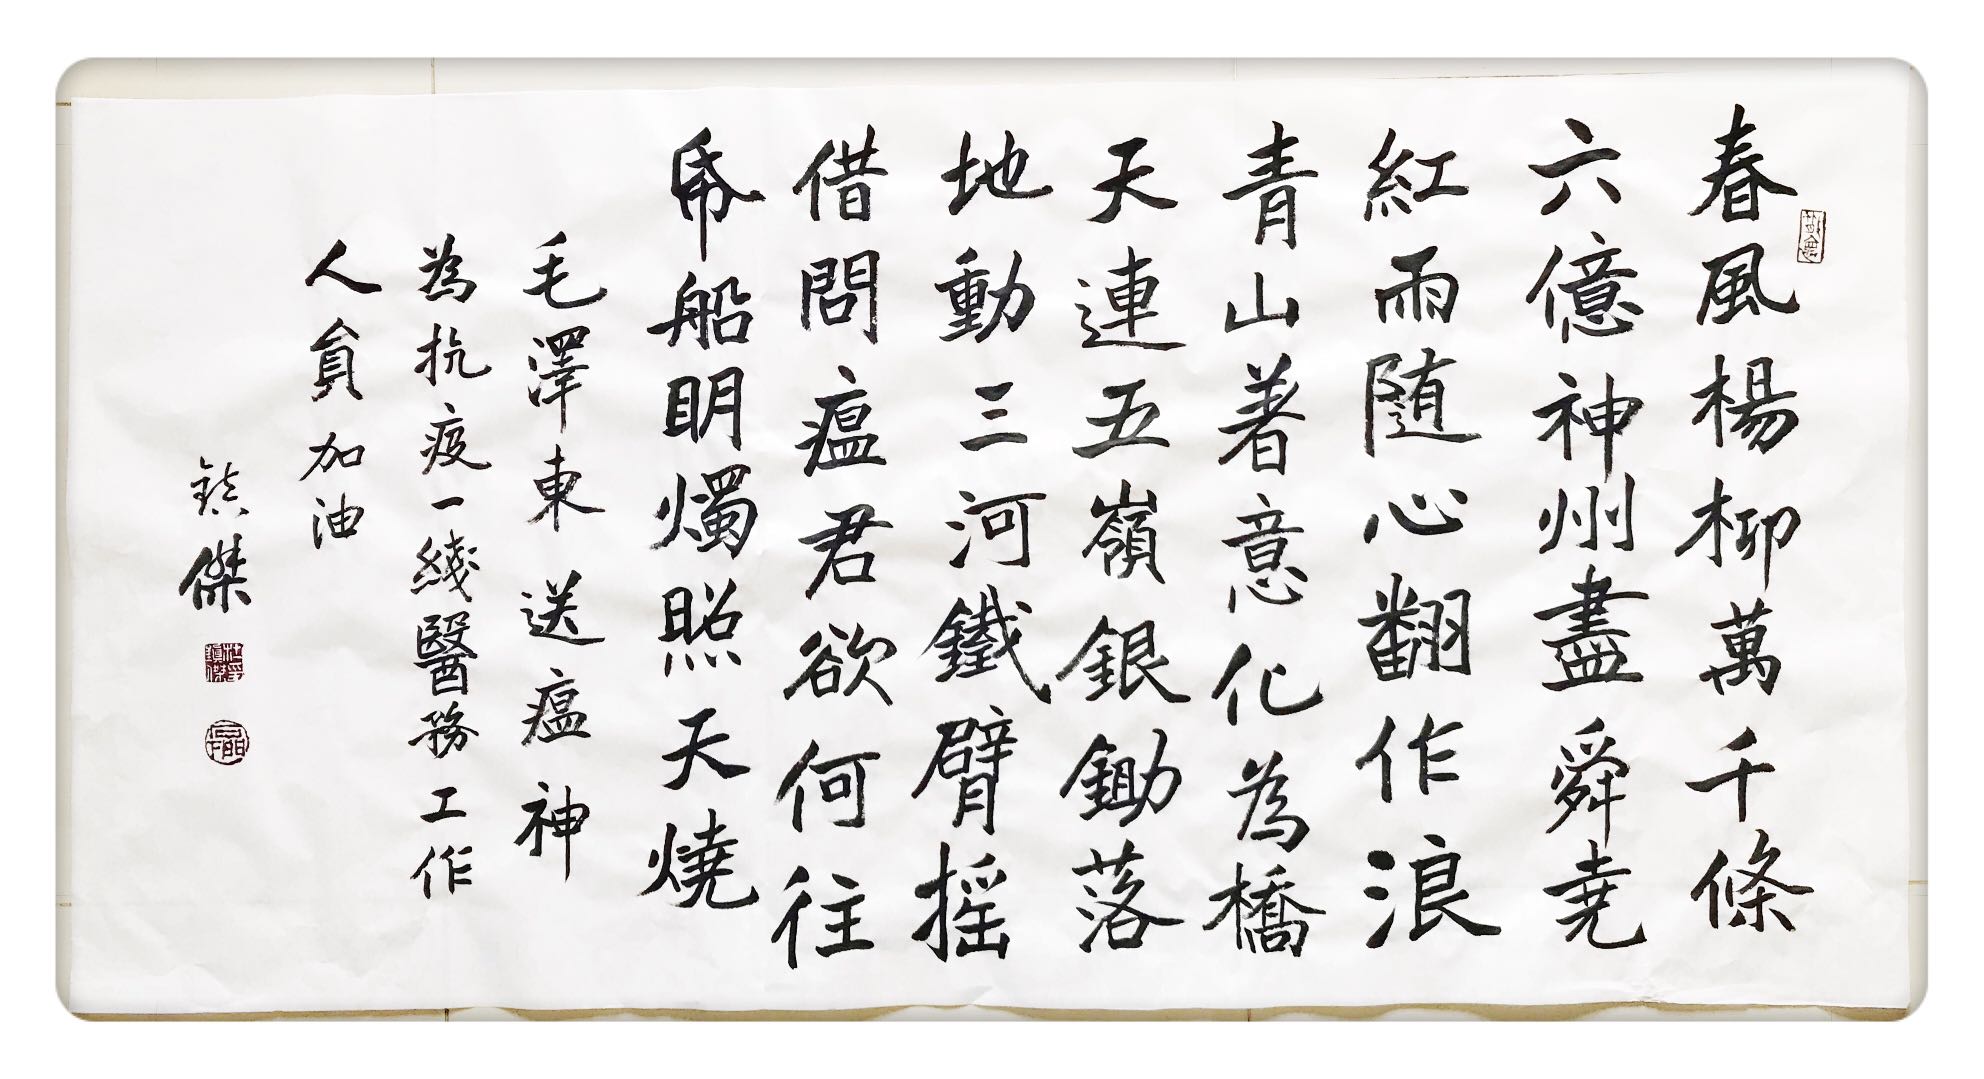 春風楊柳萬千條
六億神州盡舜堯
紅雨随心翻作浪
青山著意化為橋
天連五嶺銀鋤落
地動三河鐵臂摇
借問瘟君欲何往
帋船明燭照天燒
毛澤東送瘟神
為抗疫一綫醫務工作
人員加油
鎮傑